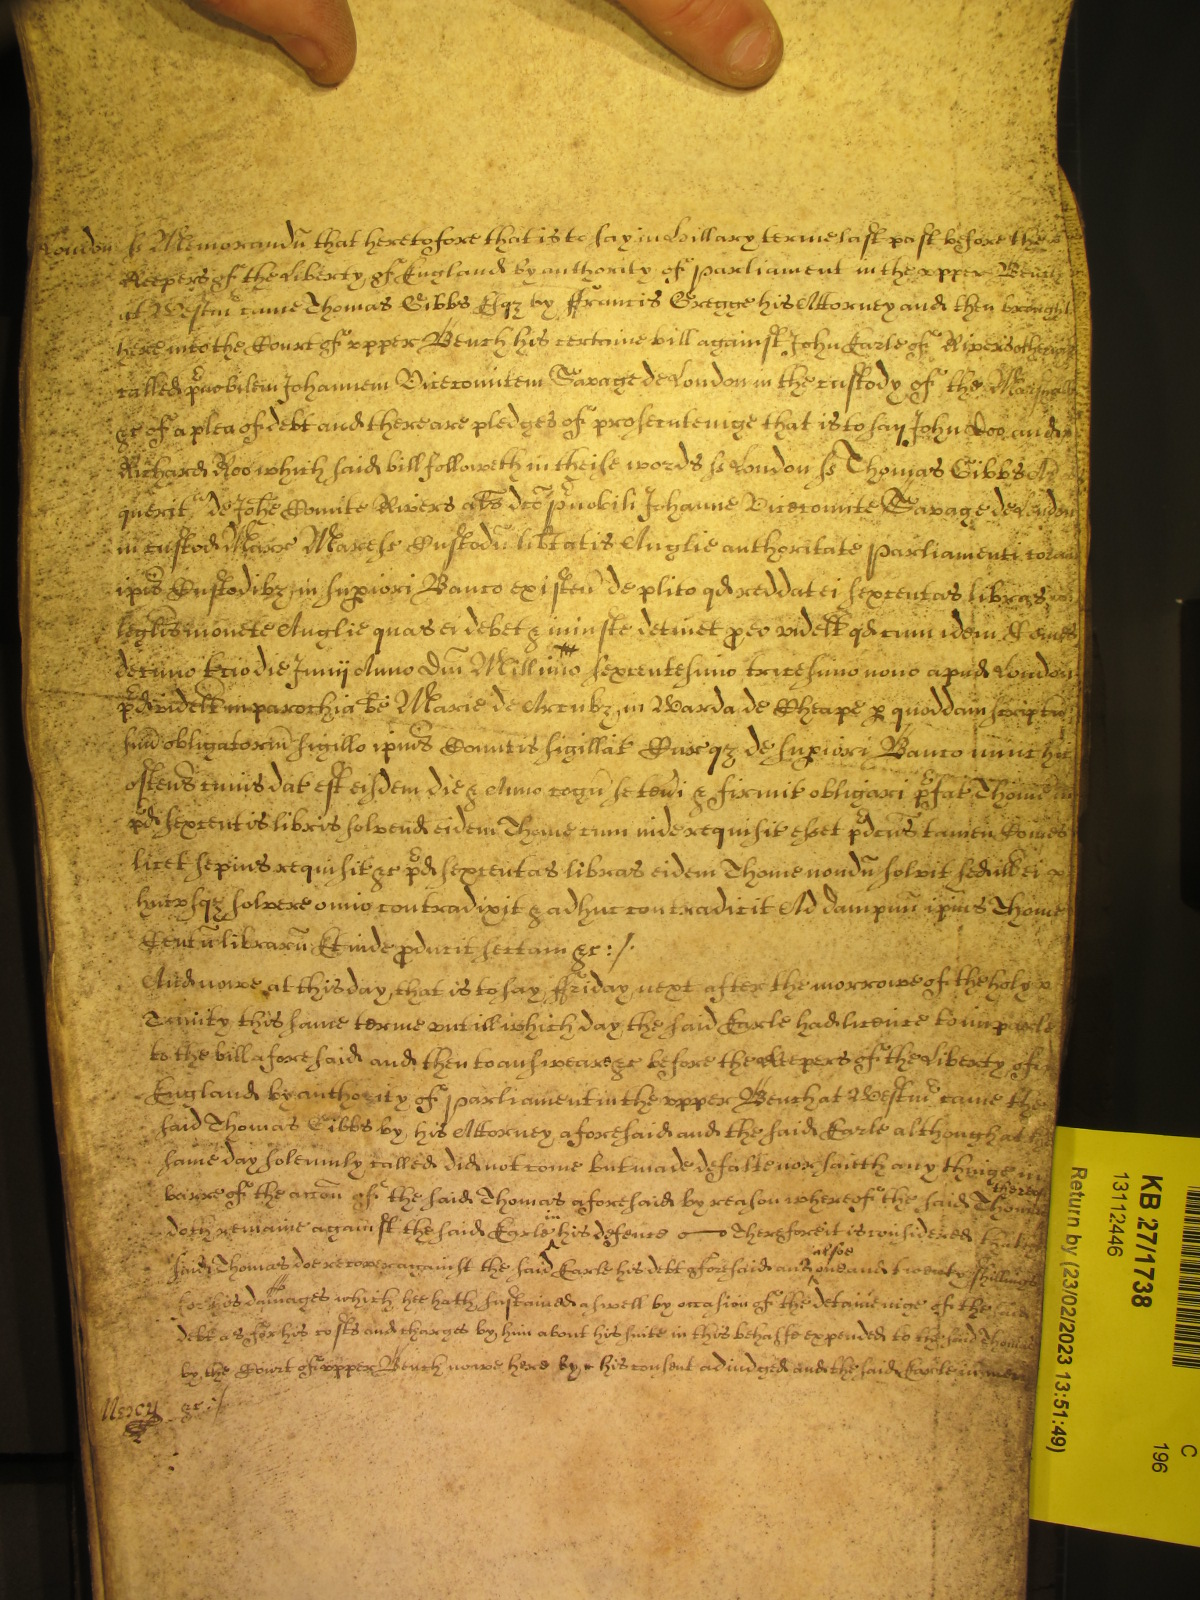 London ss Memorandũ that heretofore that is to say in Hillary terme last past before the
Keepers of the Liberty of England by authority of Parliament in the upper Bench
at Westm̃ came Thomas Gibbs Esqʒ by ffrancis Gregge his Attorney and then brought
here into the Court of upper Bench his certaine bill against John Earle of Rivers otherwise
called p̃nobilem Johannem Vicecomitem Savage de London in the custody of the Marshall
&c of a plea of debt and there are pledges of prosecuteinge that is to say John Doo and
Richard Roo which said bill followeth in theise words ss London ss Thomas Gibbs Ar
querit̃ de Joħe Comite Rivers aƚs dcõ p̃nobili Johanne Vicecomite Savage de London
in custod Marr Marese Custodũ liƀtatis Anglie authoritate Parliamenti coram
ipis Custodibʒ in supiori Banco existen̄ de plito qd reddat ei sexcentas libras
leglis monete Anglie quas ei debet & iniuste detinet p eo videlt qd cum idem Comes
decimo tcio die Junij Anno Dm̃ Millimo sexcentesimo tricesimo nono apud London
p̃d videlt in parochia bẽ Marie de Arcubʒ in Warda de Cheape p quoddam scriptũ
suũ obligatoriũ sigillo ipius Comitis sigillat̃ Cur qʒ de supiori Banco nunc hic
ostens̃ cuius dat̃ est eisdem die & Anno cogñ se teneri & firmit̃ obligari p̃fat̃ Thome in
p̃d sexcentis libris solvend eidem Thome cum inde requisit̃ esset p̃dcũs tamen Comes
licet sepius requisit̃ &c p̃d sexcentas libras eidem Thome nondũ solvit sed ill ei
hucusqʒ solvere om̃io contradixit & adhuc contradicit Ad dampnũ ipius Thome
Centũ librarũ Et inde pducit sectam &c :/.
And nowe at this day, that is to say ffriday next after the morrowe of the holy
Trinity this same terme untill which day the said Earle had licence to imparle
to the bill aforesaid and then to answeare &c before the Keepers of the Liberty of
England by authority of Parliament in the upper Bench at Westm̃ came the
said Thomas Gibbs by his Attorney aforesaid and the said Earle although at the
same day solemnly called did not come but made defalte nor saieth any thinge in
barre of the accon̄ of the said Thomas aforesaid by reason whereof the said Thomas thereof
doth remaine against the said Earle in his defence —— Therefore it is considered that
said Thomas doe recover against the said Earle his debt aforesaid and alsoe one and twenty shillings
for his damages which hee hath sustained aswell by occasion of the deteineinge of the said
debt as for his costs and charges by him about his suite in this behalfe expended to the said Thomas
by the Court of upper Bench nowe here by his consent adiudged and the said Earle in
Mercy &c :/
KB 27/1738
13112446
Return by (23/02/2023 13:51:49)
C
196